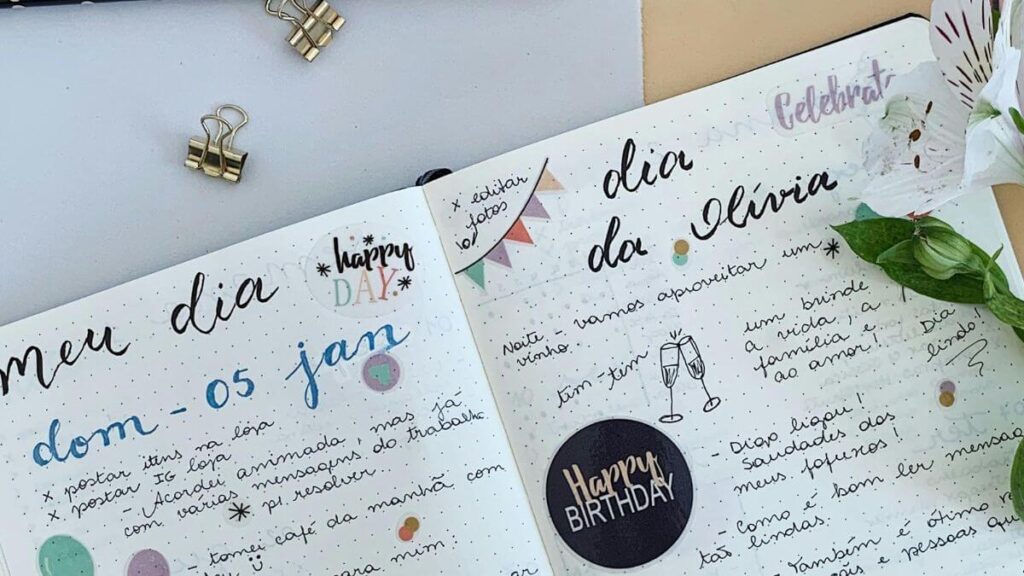 meu dia
happy
DAY.
dom - 05 jan
x postar itens na loja
x postar IG loja
- Acordei animada, mas já
com várias mensagens do trabalho
p/ resolver.
- tomei café da manhã com
mim:
x editar
fotos
dia
da Olívia
Celebrat
Noite - vamos aproveitar um
vinho.
tim-tim
um brinde
a vida, a
família e
ao amor! Dia
lindo!
Happy
BIRTHDAY
- Diego ligou!
Saudades dos
meus fofuxos!
- Como é bom ler mensa
tão lindas.
- Também é ótimo
e pessoas qu